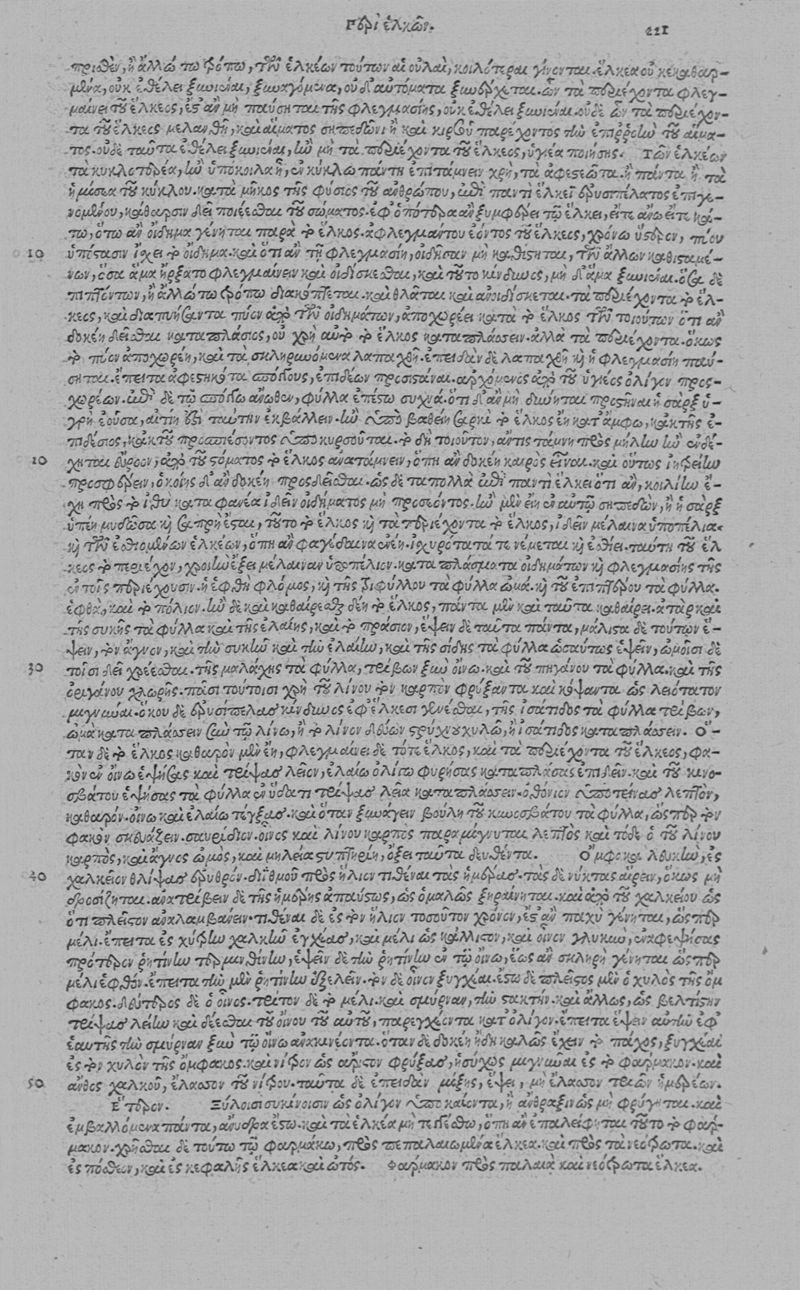 Περὶ ἑλκῶν. 221
πριωθὲν, ἢ ἄλλῳ τῳ τρόπῳ, τῶν ἑλκέων τούτων αἱ οὐλαὶ, κοιλότεραι γίνονται. ἕλκεα οὐ κεκαθαρ-
μένα, οὐκ ἐθέλει ξυνιέναι, ξυναγόμενα, οὐδ' αὐτόματα ξυνέρχεται. ὧν τὰ περιέχοντα φλεγ-
μαίνει τοῦ ἕλκεος, ἔς ἂν μὴ παύσηται τῆς φλεγμασίης, οὐκ ἐθέλει ξυνιέναι. οὐδὲ ὧν τὰ περιέχον-
τα τοῦ ἕλκεος μελανθῇ, καὶ αἵματος σηπεδόνι ἢ καὶ κιρσοῦ παρέχοντος τὴν ἐπιρροὴν τοῦ αἵμα-
τος. οὐδὲ ταῦτα ἐθέλει ξυνιέναι, ἢν μὴ τὰ περιέχοντα τοῦ ἕλκεος, ὑγιέα ποιήσῃς. Τῶν ἑλκέων
τὰ κυκλοτερέα, ἢν ὑπόκοιλα ᾖ, ἐν κύκλῳ πάντη ἐπιτάμνειν χρὴ, τὰ ἀφεσεῶτα. ἢ πάντα ἢ τὰ
ἡμίσεα τοῦ κύκλου. κατὰ μῆκος τῆς φύσιος τοῦ ἀνθρώπου, ἐπὶ παντὶ ἕλκεϊ ἐρυσιπέλατος ἐπιγε-
νομένου, κάθαρσιν δεῖ ποιέεσθαι τοῦ σώματος. ἐφ' ὁπότερα ἂν ξυμφέρει τῷ ἕλκει, εἴτε ἄνω εἴτε κά-
τω, ὅτῳ ἂν οἴδημα γένηται παρὰ τὸ ἕλκος. ἀφλεγμάντου ἐόντος τοῦ ἕλκεος, χρόνῳ ὕστερον, πύου
10 ὑπόστασιν ἴσχει τὸ οἴδημα. καὶ ὅτι ἂν τῇ φλεγμασίῃ, οἰδῆσαν μὴ καθίστηται, τῶν ἄλλων καθισταμέ-
νων, ὅσα ἅμα ἤρξατο φλεγμαίνειν καὶ οἰδίσκεσθαι, καὶ τοῦτο κίνδυνος, μὴ δ' ἅμα ξυνιέναι. ὅσα δὲ
πιπτόντων, ἢ ἄλλῳ τῳ τρόπῳ διακόπτεται. καὶ θλᾶται καὶ ἀνοιδίσκεται. τὰ περιέχοντα τὸ ἕλ-
κος, καὶ διαπυήσαντα πύον ἀπὸ τῶν οἰδημάτων, ἀποχωρέει κατὰ τὸ ἕλκος τῶν τοιούτων ὅτι ἂν
δοκέῃ δεῖσθαι καταπλάσιος, οὐ χρὴ αὐτὸ τὸ ἕλκος καταπλάσσειν. ἀλλὰ τὰ περιέχοντα. ὅκως
τὸ πύον ἀποχωρέῃ, καὶ τὰ σκληρυνόμενα λαπαχθῇ. ἐπειδὰν δὲ λαπαχθῇ καὶ ἡ φλεγμασίη παύ-
σηται. ἔπειτα ἀφεστηκότα σπόγγους, ἐπιδέων προσιστάναι. ἀρχόμενος ἀπὸ τοῦ ὑγιέος ὀλίγον προσ-
χωρέων. ἐπὶ δὲ τῷ σπόγγῳ ἄνωθεν, φύλλα ἐπέστω συχνά. ὅτι δ' ἂν μὴ δύνηται προσστῆναι ἡ σὰρξ ὑ-
γρὴ ἐοῦσα, αὐτίη ἐστὶ ταύτην ἐκβάλλειν. ἢν ὑπὸ βαθείῃ σαρκὶ τὸ ἕλκος ἔῃ κατ' ἄμφω, κἀκ τῆς ἐ-
πιδέσιος, κἀκ τοῦ προσπέσοντος ὑπὸ κυρσοῦται. τὸ δὴ τοιοῦτον, αὖτις τάμνῃ πρὸς μήλην ἢν ἐνδέ-
20 χηται εὔροον, ἀπὸ τοῦ στόματος τὸ ἕλκος ἀνατάμνειν, ὅπῃ ἂν δοκέῃ καιρὸς εἶναι. καὶ οὕτως ἰητρείην
προσφέρειν, ὁκοίης δ' ἂν δοκέῃ προσδεῖσθαι. ὡς δὲ τὰ πολλὰ ἐπὶ παντὶ ἕλκεϊ ὅτι ἂν, κοιλίην ἔ-
χῃ πρὸς τὸ ἰθὺ καταφανέα ἰδεῖν οἰδήματος μὴ προσεόντος. ἢν μὲν ἔῃ ἐν αὐτῷ σηπεδὼν, ἢ ἡ σὰρξ
ὑπέῃ μυδῶσα καὶ σαπρὴ ἔσται, τοῦτο τὸ ἕλκος καὶ τὰ περιέχοντα τὸ ἕλκος, ἰδεῖν μέλαινα ὑποπέλια.
καὶ τῶν ἐσθιομένων ἑλκέων, ὅπῃ ἂν φαγέδαινα ἐνέῃ. ἰσχυρότατά τε νέμεται καὶ ἐσθίει. ταύτῃ τοῦ ἕλ-
κεος τὸ περιέχον, χροιὴν ἕξει μέλαιναν ὑποπέλιον. καταπλάσματα οἰδημάτων καὶ φλεγμασίης τῆς
ἐν τοῖς περιέχουσιν. ἡ ἑφθὴ φλόμος, καὶ τῆς τριφύλλου τὰ φύλλα ὠμὰ. καὶ τοῦ ἐπιπέτρου τὰ φύλλα.
ἑφθὰ, καὶ τὸ πόλιον. ἢν δὲ καὶ καθαίρεσθαι δέῃ τὸ ἕλκος, πάντα μὲν καὶ ταῦτα καθαίρει. ἀτὰρ καὶ
τῆς συκῆς τὰ φύλλα καὶ τῆς ἐλαίης, καὶ τὸ πράσιον, ἕψειν δὲ ταῦτα πάντα, μάλιστα δὲ τούτων ἕ-
ψειν, τὸν ἄγνον, καὶ τὴν συκῆν καὶ τὴν ἐλαίην, καὶ τῆς σίδης τὰ φύλλα ὡσαύτως ἕψειν, ὠμοῖσι δὲ
30 τοῖσι δεῖ χρέεσθαι. τῆς μαλάχης τὰ φύλλα, τρίβων ξὺν οἴνῳ. καὶ τοῦ πηγάνου τὰ φύλλα. καὶ τῆς
ὀριγάνου χλωρῆς. πᾶσι τούτοισι χρὴ τοῦ λίνου τὸν καρπὸν φρύξαντα καὶ κόψαντα ὡς λειότατον
μιγνύναι. ὅκου δὲ ἐρυσιπέλας κίνδυνος ἐφ' ἕλκεσι γενέσθαι, τῆς ἰσάτιδος τὰ φύλλα τρίβων,
ὠμὰ καταπλάσσειν σὺν τῷ λίνῳ, ἢ τὸ λίνον δεύων στρύχνου χυλῷ, ἢ ἰσάτιδος καταπλάσσειν. Ὅ-
ταν δὲ τὸ ἕλκος καθαρὸν μὲν ἔῃ, φλεγμαίνει δὲ τότε ἕλκος, καὶ τὰ περιέχοντα τοῦ ἕλκεος, φα-
κὸν ἐν οἴνῳ ἑψήσας καὶ τρίψας λεῖον, ἐλαίῳ ὀλίγῳ φυρήσας καταπλάσας ἐπιδεῖν. καὶ τοῦ κυνο-
σβάτου ἑψήσας τὰ φύλλα ἐν ὕδατι τρίψας λεῖα καταπλάσσειν. ὀθόνιον ὑποτείνας λεπτὸν,
καθαρόν. οἴνῳ καὶ ἐλαίῳ τέγξας. καὶ ὅταν ξυνάγειν βούλῃ τοῦ κυνοσβάτου τὰ φύλλα, ὥσπερ τὸν
φακὸν σκευάζειν. σαυρίδιον. οἶνος καὶ λίνου καρπὸς παραμίγνυται λεπτὸς καὶ τόδε ὁ τοῦ λίνου
καρπὸς, καὶ ἄγνος ὠμὸς, καὶ μηλείη στυπτηρίη, ὄξει ταῦτα δευθέντα. Ὄμφακα λευκὴν, ἐς
40 χαλκεῖον θλίψας ἐρυθρὸν. διηθμοῦ πρὸς ἥλιον τιθέναι τὰς ἡμέρας. τὰς δὲ νύκτας αἴρειν, ὅκως μὴ
δροσίζηται. ἀνατρίβειν δὲ τῆς ἡμέρης ἀπαύστως, ὡς ὁμαλῶς ξηραίνηται. καὶ ἀπὸ τοῦ χαλκείου ὡς
ὅτι πλεῖστον ἀναλαμβάνειν. τιθέναι δὲ ἐς τὸν ἥλιον τοσοῦτον χρόνον, ἐς ἂν παχὺ γένηται, ὥσπερ
μέλι. ἔπειτα ἐς χύτρην χαλκῆν ἐγχέας, καὶ μέλι ὡς κάλλιστον, καὶ οἶνον γλυκὺν, ἐναφεψήσας
πρότερον ῥητίνην τερμινθίνην, ἕψειν δὲ τὴν ῥητίνην ἐν τῷ οἴνῳ, ἕως ἂν σκληρὴ γένηται ὥσπερ
μέλι ἑφθὸν. ἔπειτα τὴν μὲν ῥητίνην ἐξελεῖν. τὸν δὲ οἶνον ξυγχέαι. ἔστω δὲ πλεῖστος μὲν ὁ χυλὸς τῆς ὄμ-
φακος. δεύτερος δὲ ὁ οἶνος. τρίτον δὲ τὸ μέλι. καὶ σμύρναν, τὴν στακτὴν. καὶ ἄλλως, ὡς βελτίστην
τρίψας λείην καὶ δίεσθαι τοῦ οἴνου τοῦ αὐτοῦ, παρεγχέοντα κατ' ὀλίγον. ἔπειτα ἕψειν αὐτὴν ἐφ'
ἑαυτῆς τὴν σμύρναν ξὺν τῷ οἴνῳ ἀνακινέοντα. ὅταν δὲ δοκέῃ ἤδη καλῶς ἔχειν τὸ πάχος, ξυγχέαι
ἐς τὸν χυλὸν τῆς ὄμφακος. καὶ νίτρον ὡς ἄριστον φρύξας, ἡσύχως μιγνύναι ἐς τὸ φάρμακον. καὶ
50 ἄνθος χαλκοῦ, ἔλασσον τοῦ νίτρου. ταῦτα δὲ ἐπειδὰν μίξῃς, ἕψει, μὴ ἔλασσον τριῶν ἡμερέων.
Ἕτερον. Ξύλοισι συκίνοισιν ὡς ὀλίγον ὑποκαίοντα, ἢ ἄνθραξιν ὡς μὴ φρύγηται. καὶ
ἐμβαλλόμενα πάντα, ἄνυδρα ἔστω. καὶ τὰ ἕλκεα μὴ τεγγέσθω, ὅπῃ ἂν ἐπαλείφηται τοῦτο τὸ φάρ-
μακον. χρῆσθαι δὲ τούτῳ τῷ φαρμάκῳ, πρὸς πεπαλαιωμένα ἕλκεα. καὶ πρὸς τὰ νεότρωτα. καὶ
ἐς πόσθην, καὶ ἐς κεφαλῆς ἕλκεα καὶ ὠτός. Φάρμακον πρὸς παλαιὰ καὶ νεότρωτα ἕλκεα.